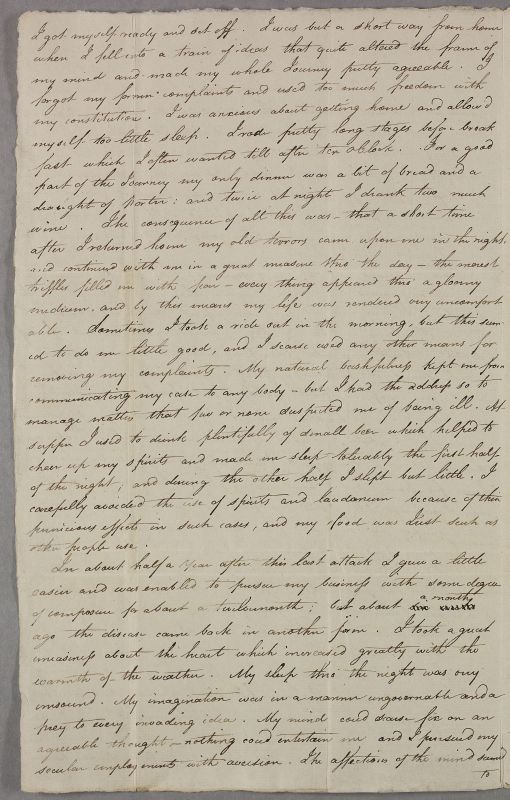 I got myself ready and set off. I was but a short way from home
when I fell into a train of ideas that quite altered the fram of
my mind and made my whole Journey pretty agreeable. I
forgot my former complaints and used too much freedom with
my constitution. I was anxious about getting home and allow'd
myself too little sleep. I rode pretty long stages before break
fast which I often wanted till after ten oClock. For a good
part of the Journey my only dinner was a bit of bread and a
draught of porter: and twice at night I drank two much
wine. The consequence of all this was - that a short time
after I returned home my old terrors came upon me in the night,
and continued with me in a great measure thro' the day - the merest
triffles filled me with fear - every thing appeared thro' a gloomy
medium, and by this means my life was rendered very uncomfort
able. Sometimes I took a ride out in the morning, but this seem
ed to do me little good, and I scarse used any other means for
removing my complaints. My natural bashfulness kept me from
communicating my case to any body - but I had the address so to
manage matters that few or none suspected me of being ill. At
supper I used to drink plentifully of small beer which helped to
chear up my spirits and made me sleep tolerably the first half
of the night; and during the other half I slept but little. I
carefully avoided the use of spirits and laudanum because of their
pernicious effects in such cases, and my food was Just such as
other people use.
In about half a Year after this last attack I grew a little
easier and was enabled to pursue my business with some degree
of composure for about a twelvemonth; but about a month
ago the disease came back in another form. I took a great
uneasiness about the heart which increased greatly with the
warmth of the weather. My sleep thro' the night was very
unsound. My imagination was in a manner ungovernable and a
prey to every invading idea. My mind coud scarse fix on an
agreeable thought - nothing coud entertain me and I pursued my
secular employments with aversion. The affections of the mind seemed
to